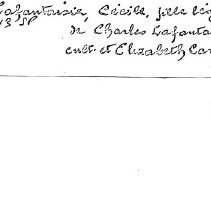 Lafantaisie, Cécile, fille lég
de Charles Lafanta
cult. et Elizabeth Car